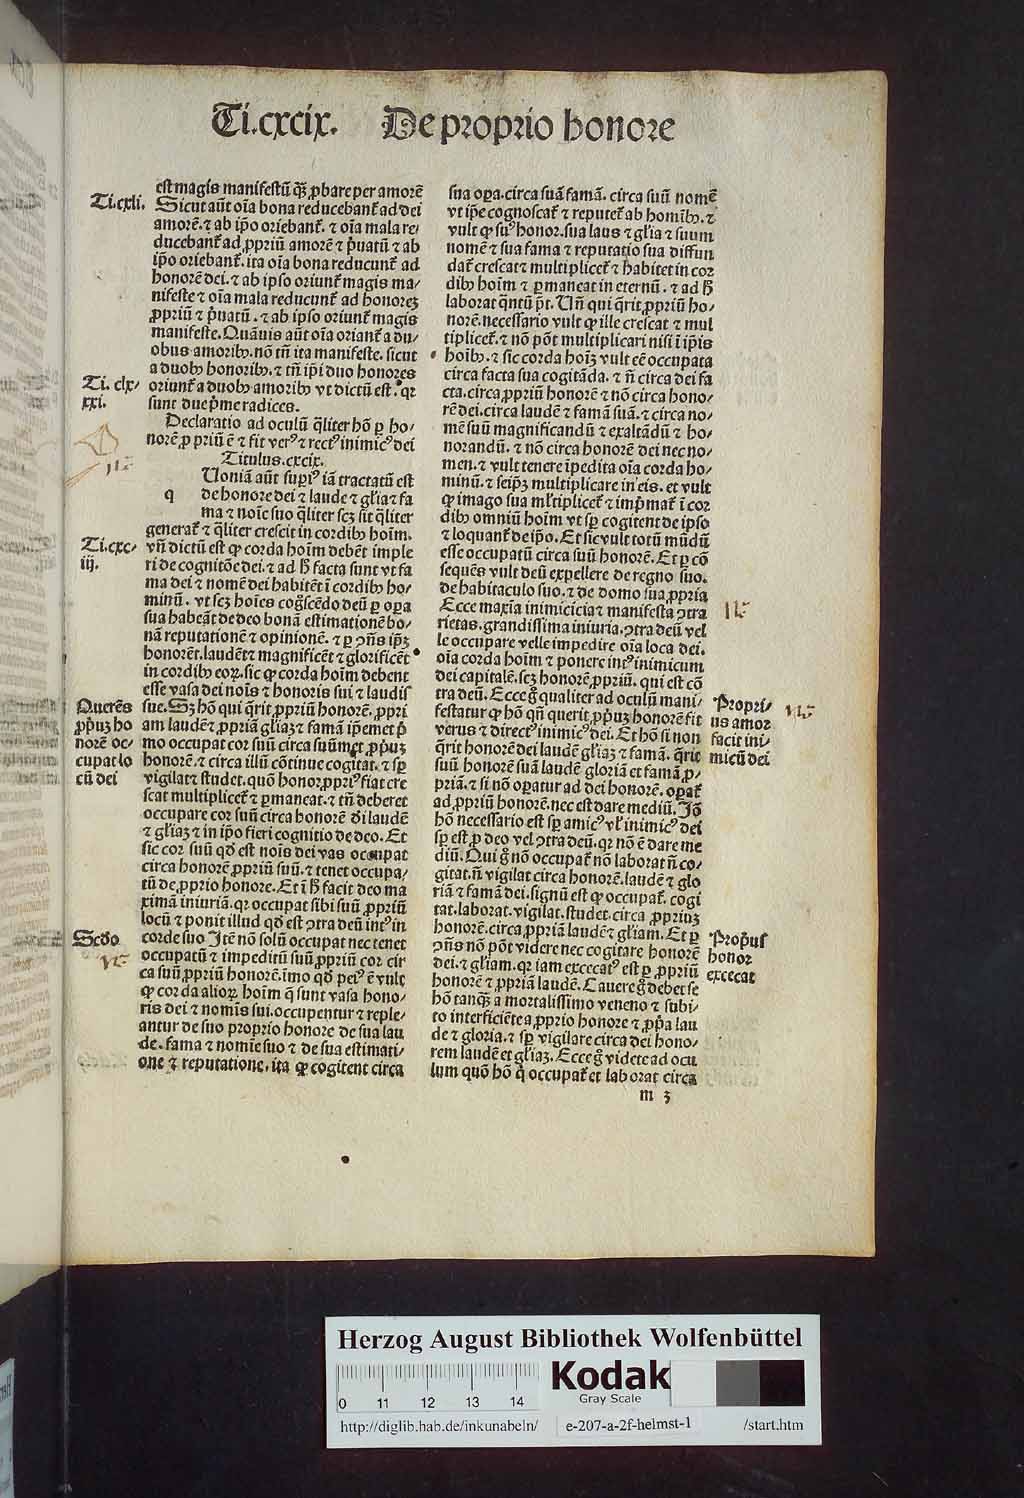 Ti.cxcix. De proprio honore
Ti.cxli.
est magis manifestū qȝ ꝓbare per amorē
Sicut aūt oīa bona reducebant̄ ad dei
amorē.⁊ ab ip̄o oriebant̄. ⁊ oīa mala re/
ducebant̄ ad ꝓpriū amorē ⁊ p̄uatū ⁊ ab
ip̄o oriebant̄. ita oīa bona reducunt̄ ad
honorē dei. ⁊ ab ipso oriunt̄ magis ma/
nifeste ⁊ oīa mala reducunt̄ ad honoreȝ
ꝓpriū ⁊ p̄uatū. ⁊ ab ipso oriunt̄ magis
manifeste. Quāuis aūt oīa oriant̄ a du/
obus amoribꝫ. nō tn̄ ita manifeste. sicut
a duobꝫ honoribꝫ. ⁊ tn̄ ip̄i duo honores
Ti. clx/
xxi.
oriunt̄ a duobꝫ amoribꝫ vt dictū est. qr
sunt due p̄me radices.
Declaratio ad oculū q̄liter hō ꝑ ho/
norē ꝓpriū ē ⁊ fit verꝰ ⁊ rectꝰ inimicꝰ dei
Titulus.cxcix.
q
Uoniā aūt suꝑiꝰ iā tractatū est
de honore dei ⁊ laude ⁊ gl̄ia ⁊ fa
ma ⁊ noīe suo q̄liter scȝ sit q̄liter
generat̄ ⁊ q̄liter crescit in cordibꝫ hoīm.
Ti.cxc/
iij.
vn̄ dictū est ꝙ corda hoīm debēt imple
ri de cognitōe dei. ⁊ ad h̄ facta sunt vt fa
ma dei ⁊ nomē dei habitēt ī cordibꝫ ho/
minū. vt scȝ hoīes cogͦscēdo deū ꝑ oꝑa
sua habeāt de deo bonā estimationē bo/
nā reputationē ⁊ opinionē. ⁊ ꝑ ꝯn̄s ip̄ȝ
honorēt. laudēt ⁊ magnificēt ⁊ glorificēt
in cordibꝫ eoꝝ. sic ꝙ corda hoīm debent
esse vasa dei noīs ⁊ honoris sui ⁊ laudis
Querēs
ꝓp̄uȝ ho
norē oc/
cupat lo
cū dei
sue. Sȝ hō qui q̄rit ꝓpriū honorē. ꝓpri
am laudē ⁊ ꝓpriā gl̄iaȝ ⁊ famā ip̄emet p̄
mo occupat cor suū circa suūmet ꝓp̄uȝ
honorē. ⁊ circa illū cōtinue cogitat. ⁊ sꝑ
vigilat ⁊ studet. quō honor ꝓpriꝰ fiat cre
scat multiplicet̄ ⁊ ꝑmaneat. ⁊ tn̄ deberet
occupare cor suū circa honorē d̄i laudē
⁊ gl̄iaȝ ⁊ in ip̄o fieri cognitio de deo. Et
sic cor suū qd̄ est noīs dei vas occupat
circa honorē ꝓpriū suū. ⁊ tenet occupa/
tū de ꝓprio honore. Et ī h̄ facit deo ma
ximā iniuriā. qr occupat sibi suū ꝓpriū
locū ⁊ ponit illud qd̄ est ꝯtra deū intꝰ in
Scdo
corde suo Itē nō solū occupat nec tenet
occupatū ⁊ impeditū suū ꝓpriū cor cir
ca suū ꝓpriū honorē. īmo qd̄ peiꝰ ē vult
ꝙ corda alioꝝ hoīm q̄ sunt vasa hono/
ris dei ⁊ nomīs sui. occupentur ⁊ reple/
antur de suo proprio honore de sua lau
de. fama ⁊ nomīe suo ⁊ de sua estimati/
one ⁊ reputatione. ita ꝙ cogitent circa
sua oꝑa. circa suā famā. circa suū nomē
vt ip̄e cognoscat̄ ⁊ reputet̄ ab homībꝫ. ⁊
vult ꝙ suꝰ honor. sua laus ⁊ gl̄ia ⁊ suum
nomē ⁊ sua fama ⁊ reputatio sua diffun
dat̄ crescat ⁊ multiplicet̄ ⁊ habitet in cor
dibꝫ hoīm ⁊ ꝑmaneat in eternū. ⁊ ad h̄
laborat q̄ntū p̄t. Un̄ qui q̄rit ꝓpriū ho/
norē. necessario vult ꝙ ille crescat ⁊ mul
tiplicet̄. ⁊ nō pōt multiplicari nisi ī ip̄is
hoībꝫ. ⁊ sic corda hoīȝ vult eē occupata
circa facta sua cogitāda. ⁊ n̄ circa dei fa
cta. circa ꝓpriū honorē ⁊ nō circa hono/
rē dei. circa laudē ⁊ famā suā. ⁊ circa no/
mē suū magnificandū ⁊ exaltādū ⁊ ho/
norandū. ⁊ nō circa honorē dei nec no/
men. ⁊ vult tenere īpedita oīa corda ho/
minū. ⁊ seip̄ȝ multiplicare in eis. et vult
ꝙ imago sua ml̄tiplicet̄ ⁊ imp̄mat̄ ī cor
dibꝫ omniū hoīm vt sꝑ cogitent de ipso
⁊ loquant̄ de ip̄o. Et sic vult totū mūdū
esse occupatū circa suū honorē. Et ꝑ cō
sequēs vult deū expellere de regno suo.
de habitaculo suo. ⁊ de domo sua ꝓpria
Ecce maxīa inimicicia ⁊ manifesta ꝯtra
rietas. grandissima iniuria. ꝯtra deū vel
le occupare velle impedire oīa loca dei.
oīa corda hoīm ⁊ ponere intꝰ inimicum
dei capitalē. scȝ honorē ꝓpriū. qui est cō
tra deū. Ecce gͦ qualiter ad oculū mani/
Propri/
us amor
facit ini/
micū dei
festatur ꝙ hō qn̄ querit ꝓp̄uȝ honorē fit
verus ⁊ directꝰ inimicꝰ dei. Et hō si non
q̄rit honorē dei laudē gl̄iaȝ ⁊ famā. q̄rit
suū honorē suā laudē gloriā et famā ꝓ/
priā. ⁊ si nō oꝑatur ad dei honorē. oꝑat̄
ad ꝓpriū honorē. nec est dare mediū. Iō
hō necessario est sꝑ amicꝰ vl̄ inimicꝰ dei
sꝑ est ꝓ deo vel ꝯtra deū. qr nō ē dare me
diū. Qui gͦ nō occupat̄ nō laborat n̄ co/
gitat. n̄ vigilat circa honorē. laudē ⁊ glo
riā ⁊ famā dei. signū est ꝙ occupat̄. cogi
tat. laborat. vigilat. studet. circa ꝓpriuȝ
honorē. circa ꝓpriā laudē ⁊ gl̄iam. Et ꝑ
Prop̄us
honor
excecat
ꝯn̄s nō pōt videre nec cogitare honorē
dei. ⁊ gl̄iam. qr iam excecatꝰ est ꝑ ꝓpriū
honorē ⁊ ꝓpriā laudē. Cauere gͦ debet se
hō tanqȝ a mortalissimo veneno ⁊ subi/
to interficiēte a ꝓprio honore ⁊ ꝓp̄a lau
de ⁊ gloria. ⁊ sꝑ vigilare circa dei hono/
rem laudē et gl̄iaȝ. Ecce gͦ videte ad ocu
lum quō hō q̄ occupat̄ et laborat circa
m 3
Herzog August Bibliothek Wolfenbüttel
0 11 12 13 14
Kodak
Gray Scale
http://diglib.hab.de/inkunabeln/ e-207-a-2f-helmst-1 /start.htm